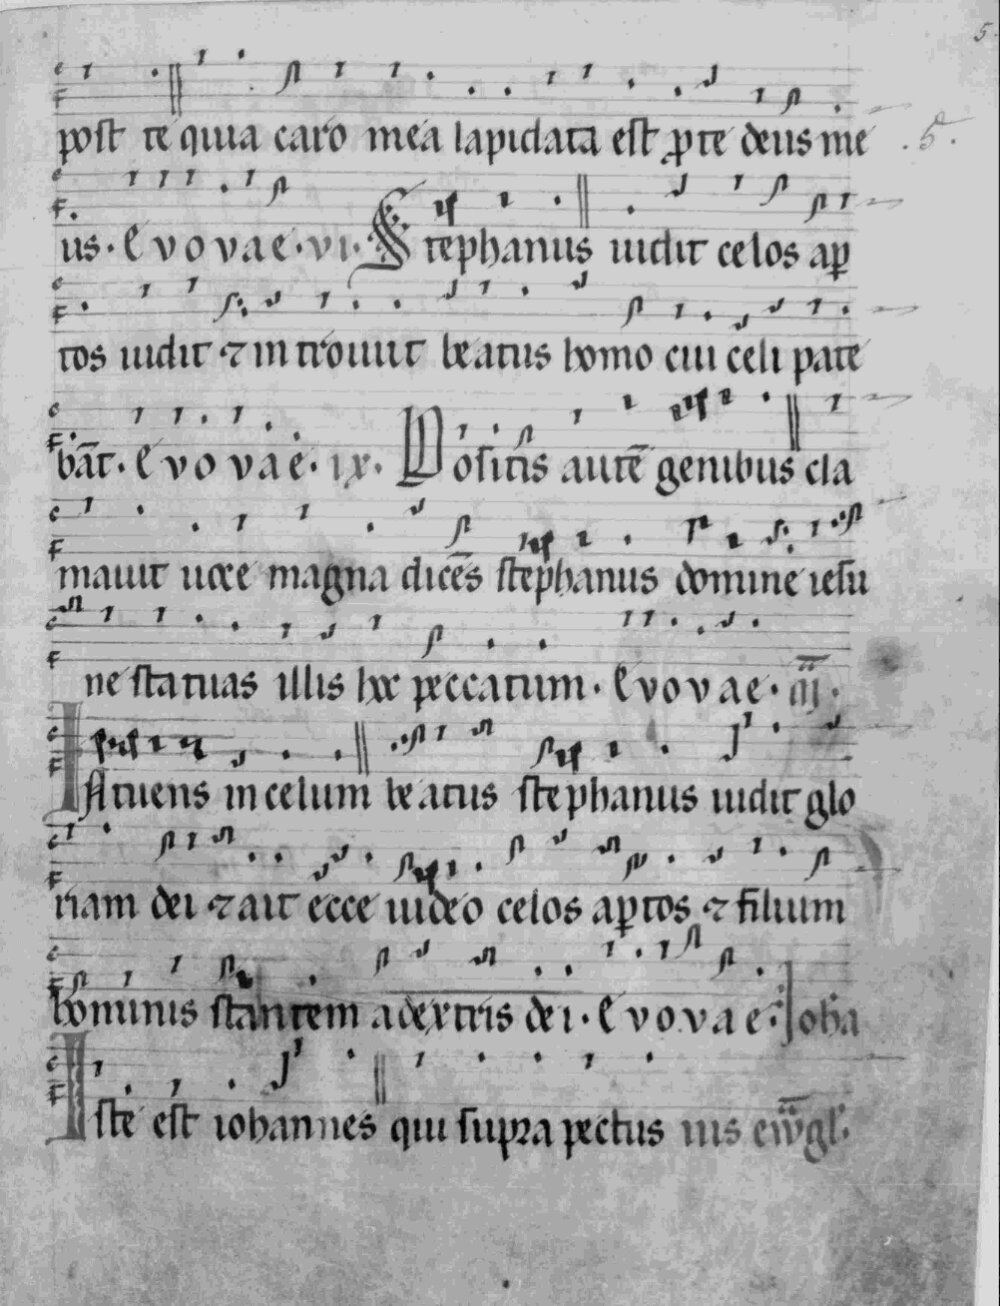 5.
post te quia caro mea lapidata est ꝓ te deus me
.5.
us. Evovae. vi. Stephanus uidit celos ap̱
tos uidit ⁊ introiuit beatus homo cui celi pate
bāt. Evovae. ix. Positis autē genibus cla
mauit uoce magna dicēs stephanus domine iesu
ne statuas illis hoc peccatum. Evovae. iij.
Intuens in celum beatus stephanus uidit glo
riam dei ⁊ ait ecce uideo celos ap̱tos ⁊ filium
hominis stantem adextris dei. Evovae. Ioha
Iste est iohannes qui supra pectus